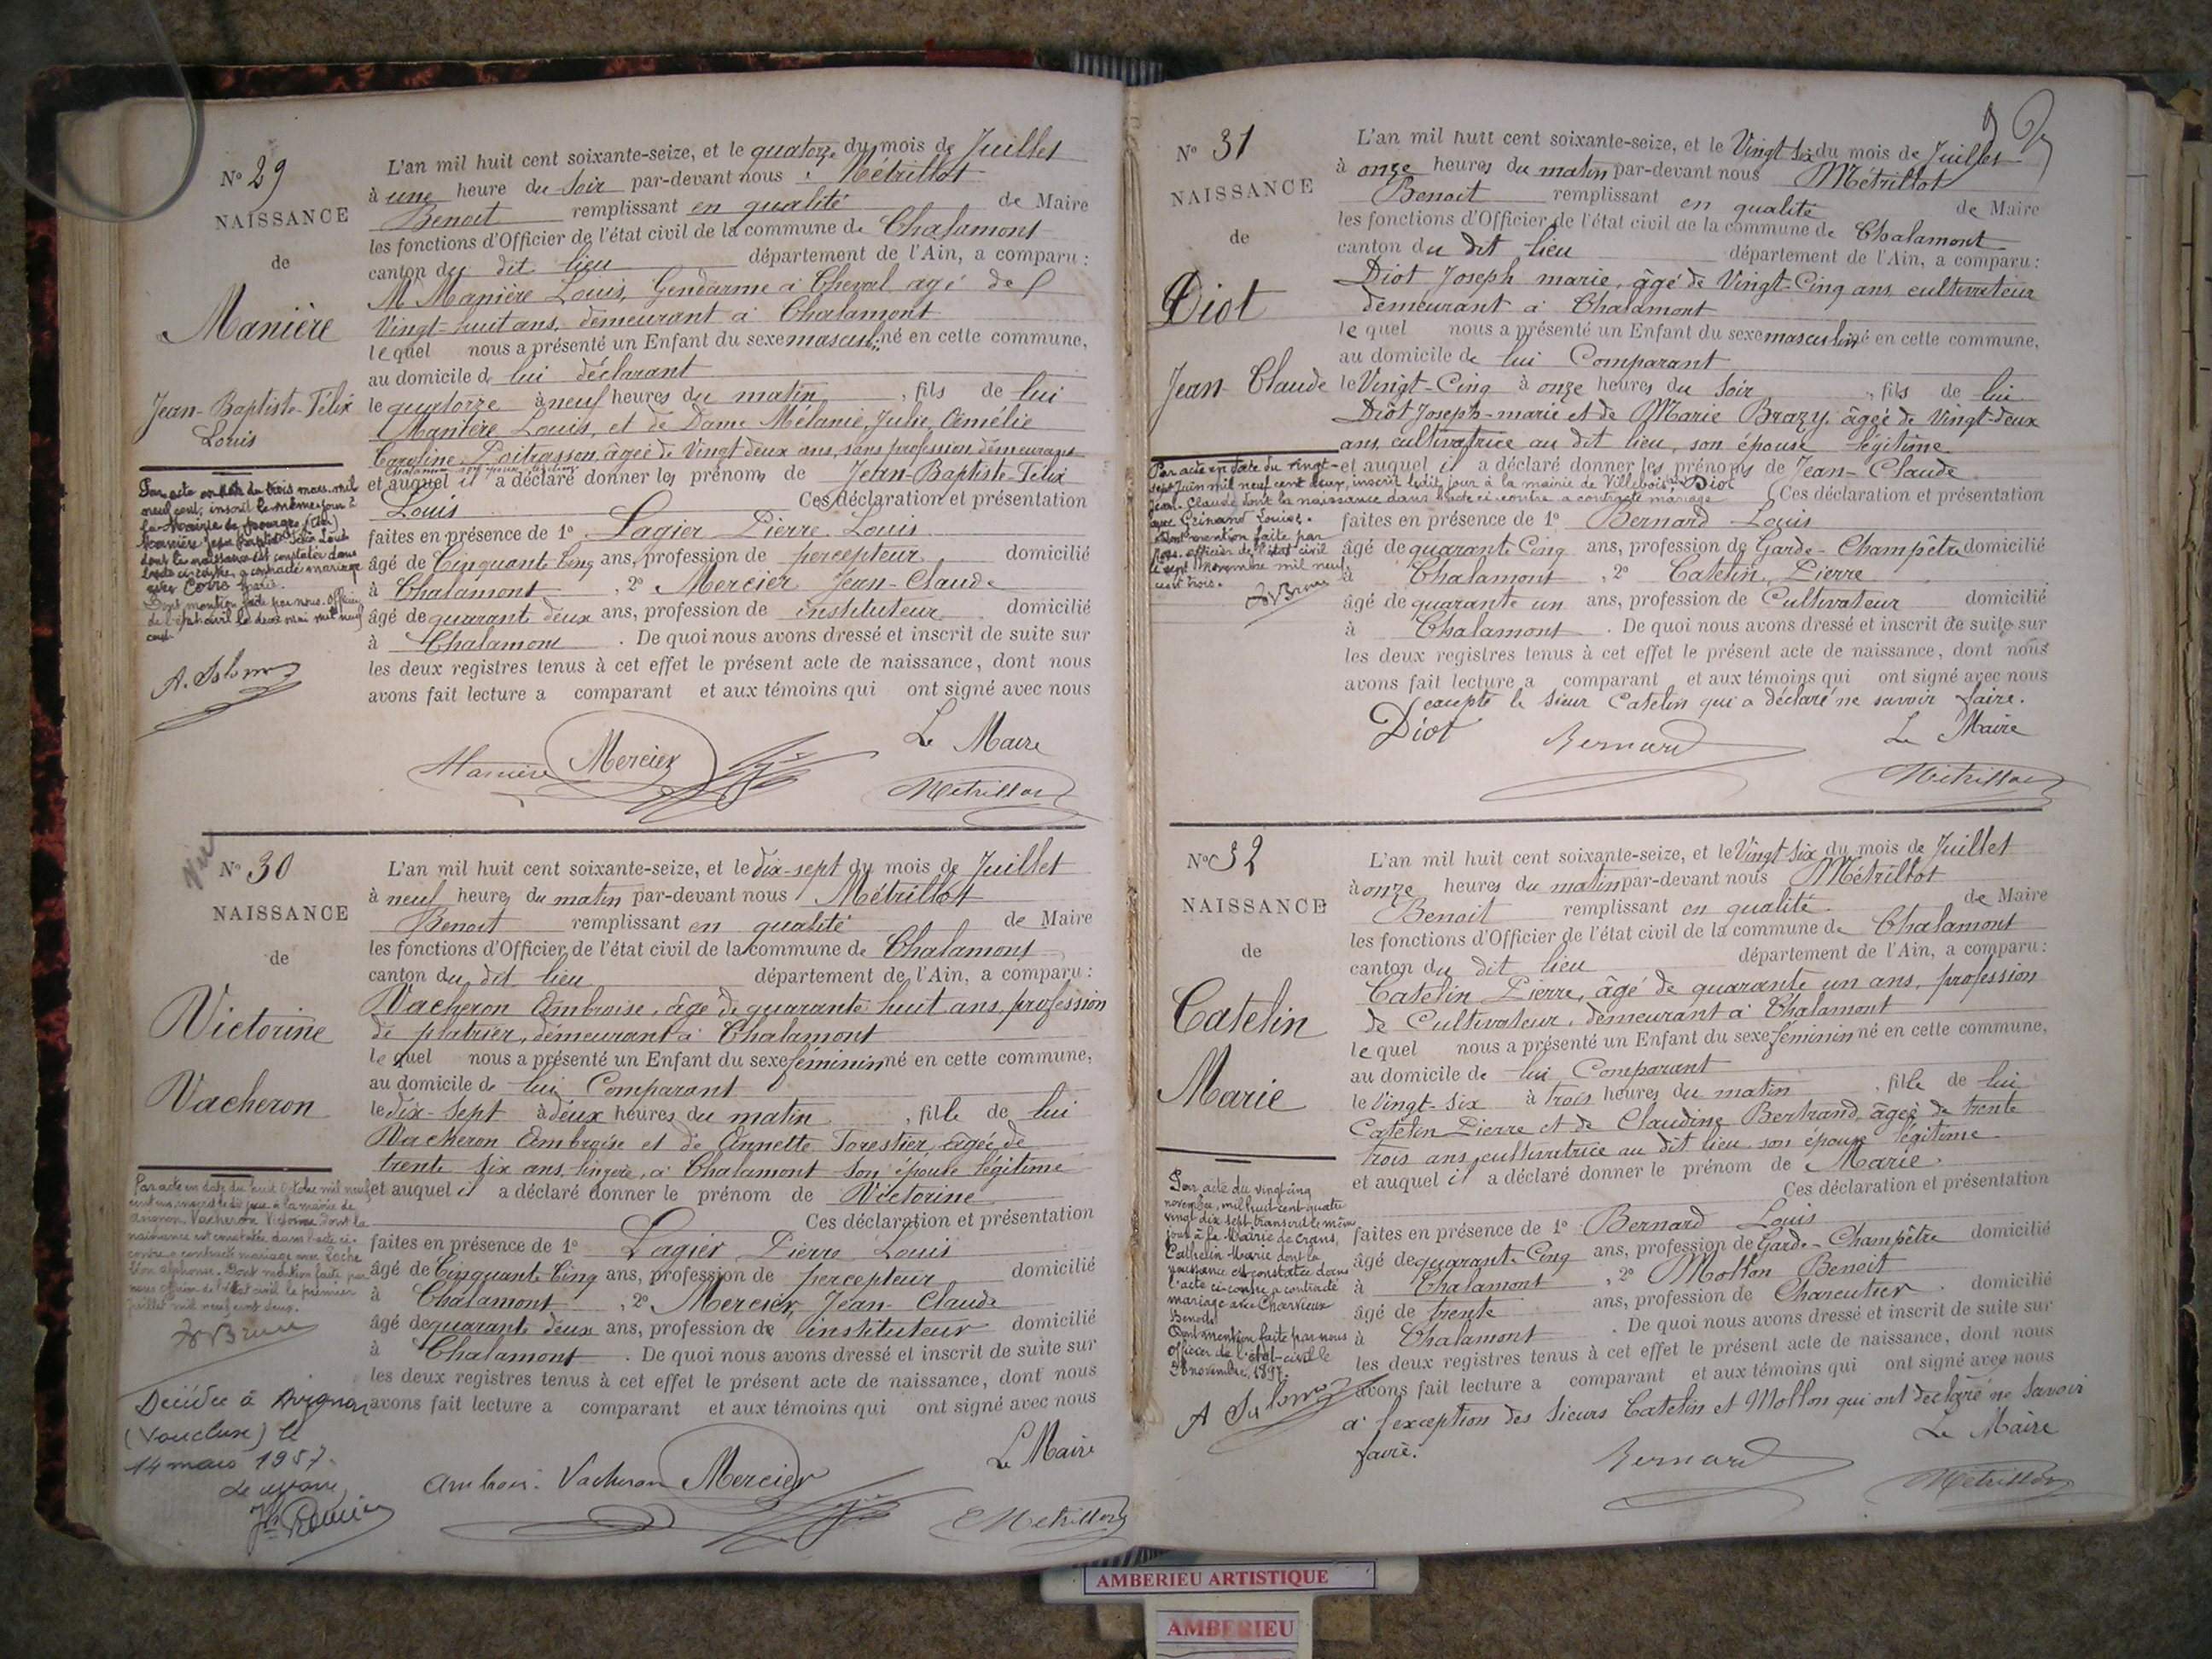 N° 29
NAISSANCE
de
Manière
Jean-Baptiste-Félix
Louis
Par acte en date du trois mars mil
neuf cent, inscrit le même jour à
la Mairie de
Manière Jean Baptiste Félix Louis
dont la naissance est constatée dans
l'acte ci-contre, a contracté mariage
avec
Dont mention faite par nous. Officier
de l'état civil le deux mai mil neuf
cent
L'an mil huit cent soixante-seize, et le quatorze du mois de Juillet
à une heure du soir par-devant nous Métrillot
Benoit remplissant en qualité de Maire
les fonctions d'Officier de l'état civil de la commune de Chalamont
canton du dit lieu département de l'Ain, a comparu :
M Manière Louis, Gendarme à Cheval agé de
Vingt-huit ans, demeurant à Chalamont
lequel nous a présenté un Enfant du sexe masculin né en cette commune,
au domicile de lui déclarant
le quatorze à neuf heures du matin, fils de lui
Manière Louis, et de Dame Mélanie, Julie, Amélie
Caroline Poitrasson, âgée de Vingt deux ans, sans profession demeurant
Chalamont son épouse légitime
et auquel il a déclaré donner les prénoms de Jean-Baptiste-Félix
Louis Ces déclaration et présentation
faites en présence de 1° Lagier Pierre Louis
âgé de Cinquante Cinq ans, profession de percepteur domicilié
à Chalamont, 2° Mercier Jean-Claude
âgé de quarante deux ans, profession de instituteur domicilié
à Chalamont. De quoi nous avons dressé et inscrit de suite sur
les deux registres tenus à cet effet le présent acte de naissance, dont nous
avons fait lecture a comparant et aux témoins qui ont signé avec nous
Le Maire
Manière Mercier Métrillot
N° 30
NAISSANCE
de
Victorine
Vacheron
Par acte en date du huit Octobre mil neuf
cent un, inscrit le dit jour à la mairie de
Avignon Vacheron Victorine dont la
naissance est constatée dans l'acte ci-
contre a contracté mariage avec Roche
Léon Alphonse. Dont mention faite par
nous officier de l'état civil le premier
juillet mil neuf cent deux.
Décédée à Avignon
(Vaucluse) le
14 mars 1957.
Le Maire
L'an mil huit cent soixante-seize, et le dix-sept du mois de Juillet
à neuf heures du matin par-devant nous Métrillot
Benoit remplissant en qualité de Maire
les fonctions d'Officier de l'état civil de la commune de Chalamont
canton du dit lieu département de l'Ain, a comparu :
Vacheron Ambroise, âgé de quarante huit ans, profession
de platrier, demeurant à Chalamont
lequel nous a présenté un Enfant du sexe féminin né en cette commune,
au domicile de lui Comparant
le dix-sept à deux heures du matin, fille de lui
Vacheron Ambroise et de Annette Forestier, âgée de
trente six ans, lingère, à Chalamont son épouse légitime
et auquel il a déclaré donner le prénom de Victorine
Ces déclaration et présentation
faites en présence de 1° Lagier Pierre Louis
âgé de Cinquante Cinq ans, profession de percepteur domicilié
à Chalamont, 2° Mercier Jean-Claude
âgé de quarante deux ans, profession de instituteur domicilié
à Chalamont. De quoi nous avons dressé et inscrit de suite sur
les deux registres tenus à cet effet le présent acte de naissance, dont nous
avons fait lecture a comparant et aux témoins qui ont signé avec nous
Le Maire
Ambroi. Vacheron Mercier Métrillot
N° 31
NAISSANCE
de
Diot
Jean Claude
Par acte en date du vingt-
sept Juin mil neuf cent deux, inscrit ledit jour à la mairie de Villebois, Diot
Jean-Claude dont la naissance dans l'acte ci-contre a contracté mariage
avec Grinand Louise.
Dont mention faite par
nous officier de l'état civil
le sept Novembre mil neuf
cent trois.
L'an mil huit cent soixante-seize, et le Vingt Six du mois de Juillet
à onze heures du matin par-devant nous Métrillot
Benoit remplissant en qualité de Maire
les fonctions d'Officier de l'état civil de la commune de Chalamont
canton du dit lieu département de l'Ain, a comparu :
Diot Joseph marie, âgé de Vingt-Cinq ans, cultivateur
demeurant à Chalamont
lequel nous a présenté un Enfant du sexe masculin né en cette commune,
au domicile de lui Comparant
le Vingt-Cinq à onze heures du Soir, fils de lui
Diot Joseph-marie et de Marie Brazy, âgée de Vingt-deux
ans, cultivatrice au dit lieu, son épouse légitime
et auquel il a déclaré donner les prénoms de Jean-Claude
Ces déclaration et présentation
faites en présence de 1° Bernard Louis
âgé de quarante Cinq ans, profession de Garde-Champêtre domicilié
à Chalamont, 2° Catelin, Pierre
âgé de quarante un ans, profession de Cultivateur domicilié
à Chalamont. De quoi nous avons dressé et inscrit de suite sur
les deux registres tenus à cet effet le présent acte de naissance, dont nous
avons fait lecture a comparant et aux témoins qui ont signé avec nous
excepté le Sieur Catelin qui a déclaré ne savoir faire.
Diot Bernard Le Maire
Métrillot
N° 32
NAISSANCE
de
Catelin
Marie
Par acte du vingt-cinq
novembre, mil huit-cent-quatre
vingt dix sept, transcrit le même
jour à la Mairie de Crans,
Cathelin Marie dont la
naissance est constatée dans
l'acte ci-contre a contracté
mariage avec Charvieux
Benoit
Dont mention faite par nous
officier de l'état-civil le
novembre, 1897.
L'an mil huit cent soixante-seize, et le Vingt Six du mois de Juillet
à onze heures du matin par-devant nous Métrillot
Benoit remplissant en qualité de Maire
les fonctions d'Officier de l'état civil de la commune de Chalamont
canton du dit lieu département de l'Ain, a comparu :
Catelin Pierre, âgé de quarante un ans, profession
de Cultivateur, demeurant à Chalamont
lequel nous a présenté un Enfant du sexe féminin né en cette commune,
au domicile de lui Comparant
le Vingt-Six à trois heures du matin, fille de lui
Catelin Pierre et de Claudine Bertrand, âgée de trente
trois ans, cultivatrice au dit lieu son épouse légitime
et auquel il a déclaré donner le prénom de Marie.
Ces déclaration et présentation
faites en présence de 1° Bernard Louis
âgé de quarante-Cinq ans, profession de Garde-Champêtre domicilié
à Chalamont, 2° Mollon Benoit
âgé de trente ans, profession de Charcutier domicilié
à Chalamont. De quoi nous avons dressé et inscrit de suite sur
les deux registres tenus à cet effet le présent acte de naissance, dont nous
avons fait lecture a comparant et aux témoins qui ont signé avec nous
à l'exception des Sieurs Catelin et Mollon qui ont déclaré ne Savoir
faire. Le Maire
Bernard Métrillot
AMBERIEU ARTISTIQUE
AMBERIEU